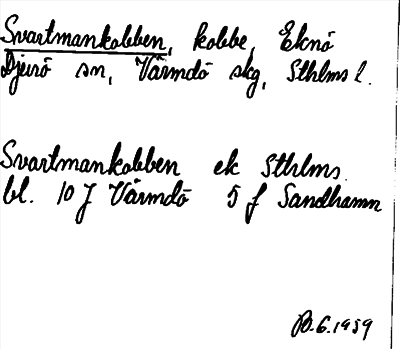 Svartmankobben, kobbe, Eknö
Djurö sn, Värmdö skg, Sthlms l.
Svartmankobben ek Sthlms
bl. 10 J Värmdö 5 f Sandhamn
6.1959